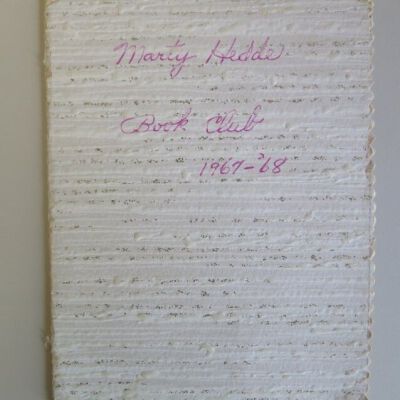 Marty Hedde
Book Club
1967-'68